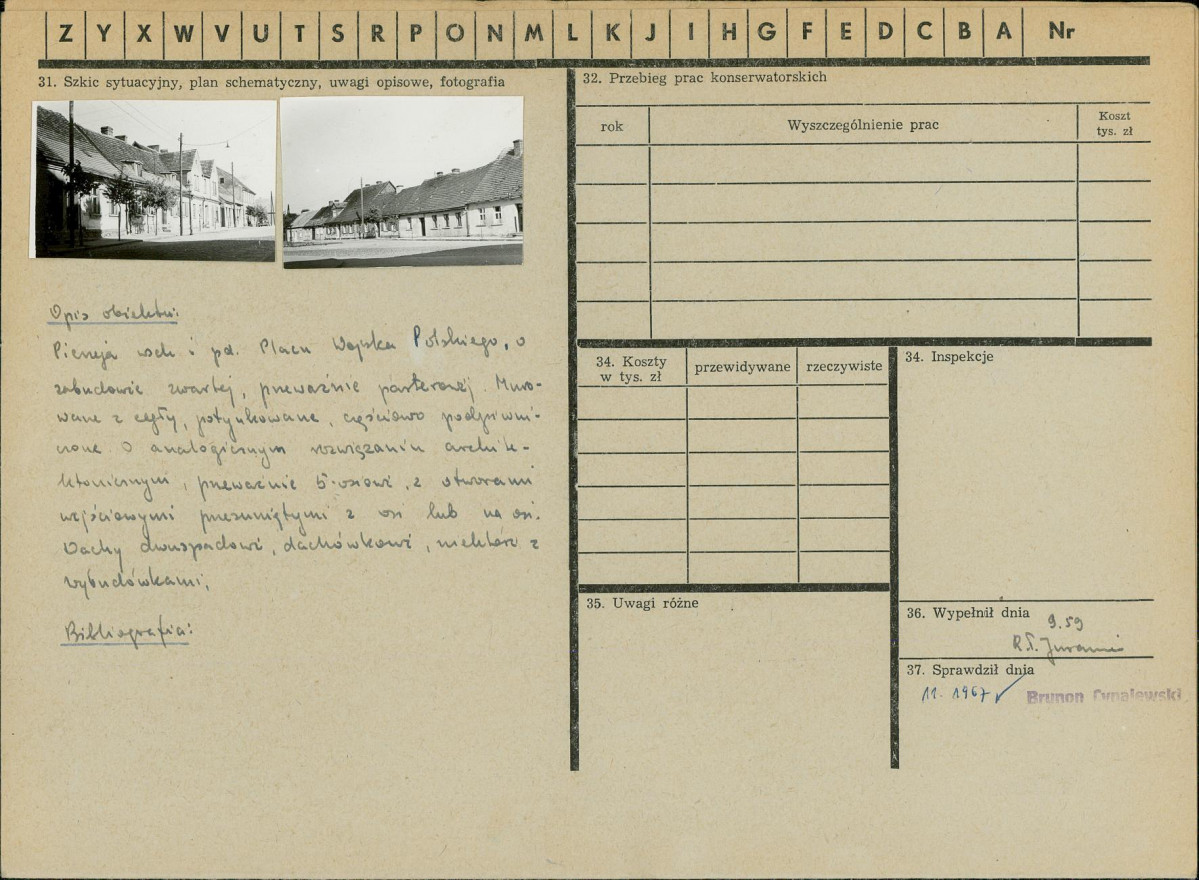 Z Y X W V U T S R P O N M L K J I H G F E D C B A Nr
31. Szkic sytuacyjny, plan schematyczny, uwagi opisowe, fotografia
Opis obiektu:
Pierzeja wsch i pd. Placu Wojska Polskiego, o
zabudowie zwartej, przeważnie parterowej. Muro-
wane z cegły, potynkowane, częściowo podpiwni-
czone o analogicznym rozwiązaniu archite-
ktonicznym, przeważnie 5-osiowe, z otworami
wejściowymi przesuniętymi z osi lub na osi.
Dachy dwuspadowe, dachówkowe, niektóre z
wybudówkami,
Bibliografia:
32. Przebieg prac konserwatorskich
rok
Wyszczególnienie prac
Koszt
tys. zł
34. Koszty
w tys. zł
przewidywane
rzeczywiste
34. Inspekcje
35. Uwagi różne
36. Wypełnił dnia
9.59
37. Sprawdził dnia
11. 1967
Brunon Cynalewski